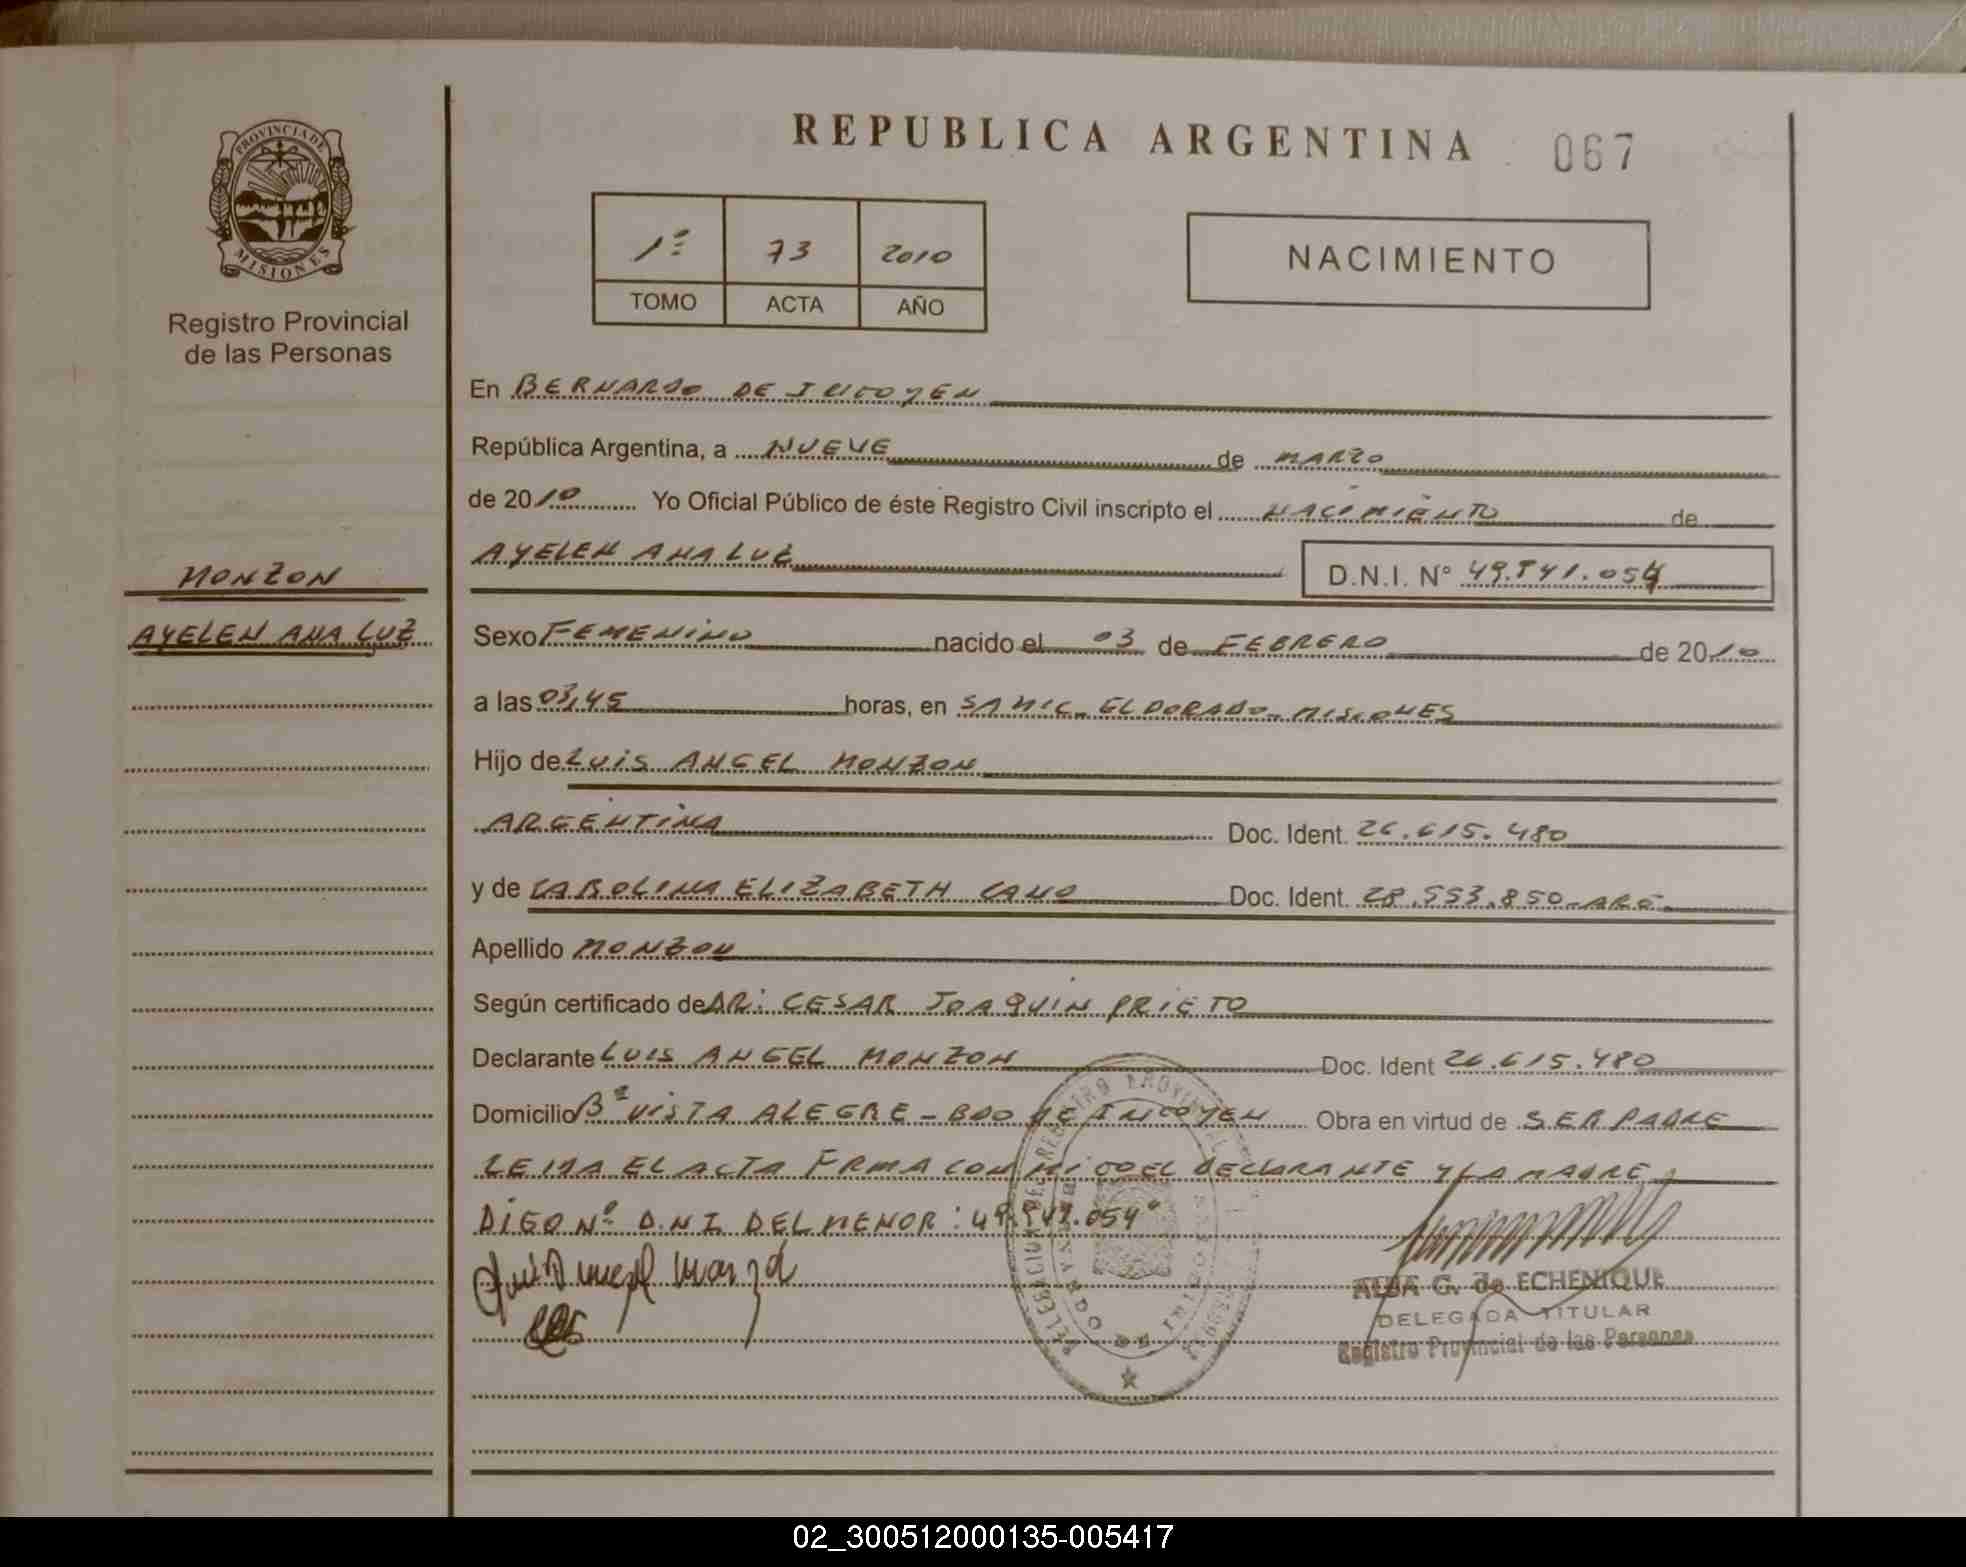 PROVINCIA DE
MISIONES
Registro Provincial
de las Personas
REPUBLICA ARGENTINA 067
1º 73 2010
TOMO ACTA AÑO
NACIMIENTO
En BERNARDO DE IRIGOYEN
República Argentina, a NUEVE de MARZO
de 2010 Yo Oficial Público de éste Registro Civil inscripto el NACIMIENTO de
AYELEN ANA LUZ D.N.I. Nº 49.841.054
MONZON
AYELEN ANA LUZ
Sexo FEMENINO nacido el 03 de FEBRERO de 2010
a las 03,45 horas, en SAMIC - ELDORADO - MISIONES
Hijo de LUIS ANGEL MONZON
ARGENTINA Doc. Ident. 26.615.480
y de CAROLINA ELIZABETH CANO Doc. Ident. 28.553.850 - ARG.
Apellido MONZON
Según certificado de DR: CESAR JOAQUIN PRIETO
Declarante LUIS ANGEL MONZON Doc. Ident 26.615.480
Domicilio Bº VISTA ALEGRE - BDO DE IRIGOYEN Obra en virtud de SER PADRE
LEIDA EL ACTA FRMA CONMIGO EL DECLARANTE Y LA MADRE
DIGO Nº D.N.I. DEL MENOR: 49.841.054"
ALBA G. de ECHENIQUE
DELEGADA TITULAR
Registro Provincial de las Personas
02_300512000135-005417